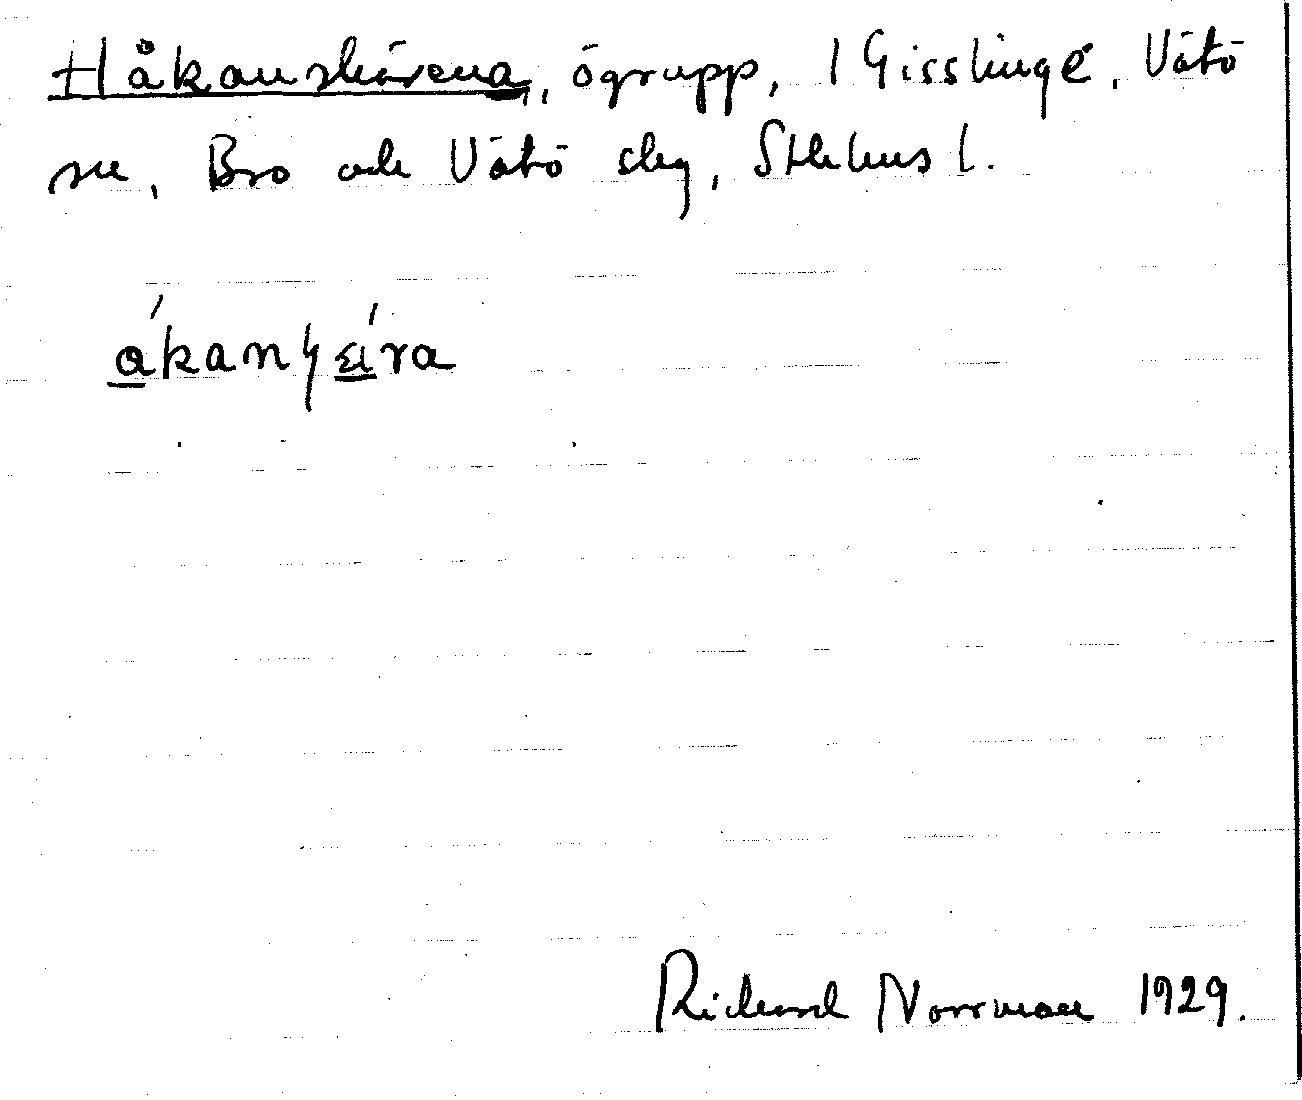 Håkanskärena, ögrupp, 1 Gisslinge, Vätö
sn, Bro och Vätö slg, Sthlms l.
Richard Norrman 1929.